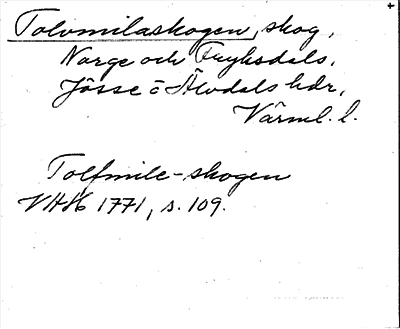 Tolvmilaskogen, skog,
Norge och Fryksdals,
Jösse o Älvdals hdr,
Värml. l.
Tolfmile-skogen
VAH 1771, s. 109.